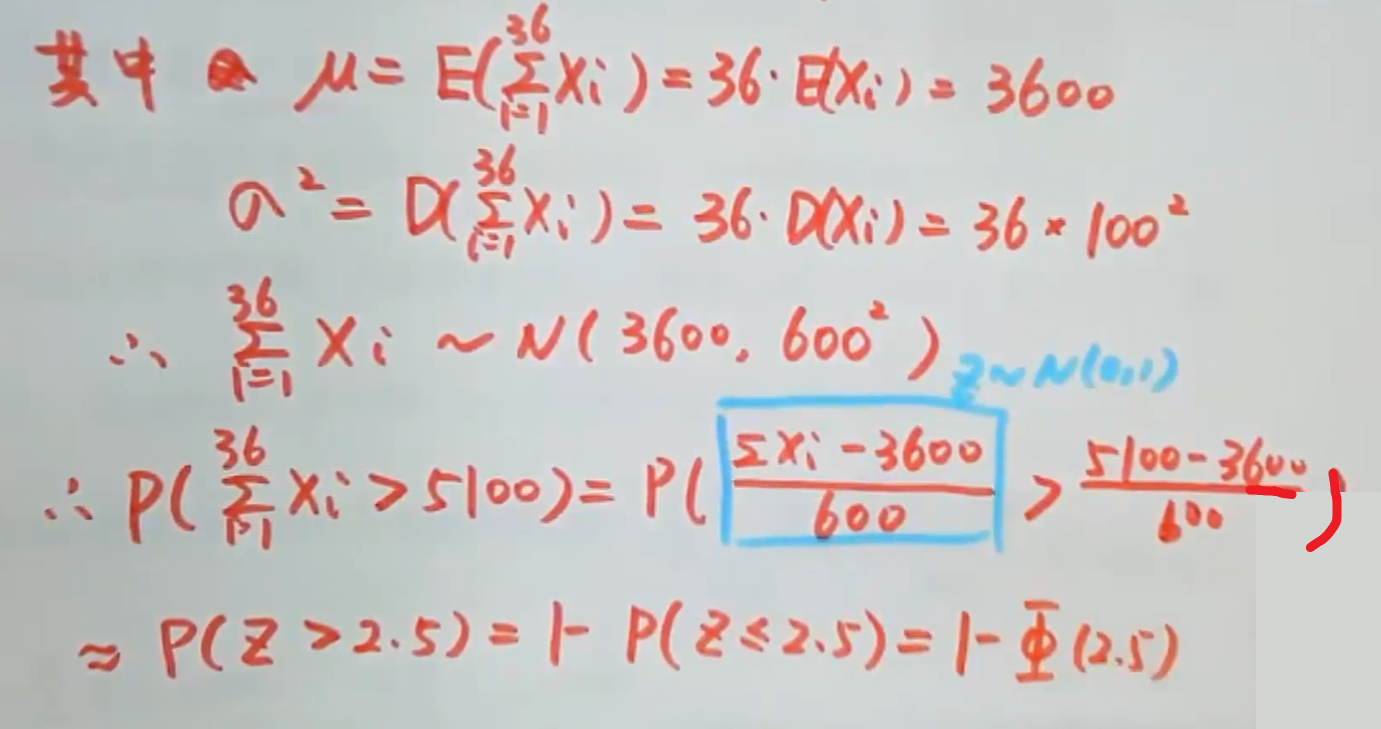 其中 μ = E(∑_{i=1}^{36} Xi) = 36·E(Xi) = 3600
σ² = D(∑_{i=1}^{36} Xi) = 36·D(Xi) = 36 × 100²
∴ ∑_{i=1}^{36} Xi ~ N(3600, 600²)
Z~N(0,1)
∴ P(∑_{i=1}^{36} Xi > 5100) = P( (∑Xi - 3600)/600 > (5100 - 3600)/600 )
≈ P(Z > 2.5) = 1 - P(Z ≤ 2.5) = 1 - Φ(2.5)